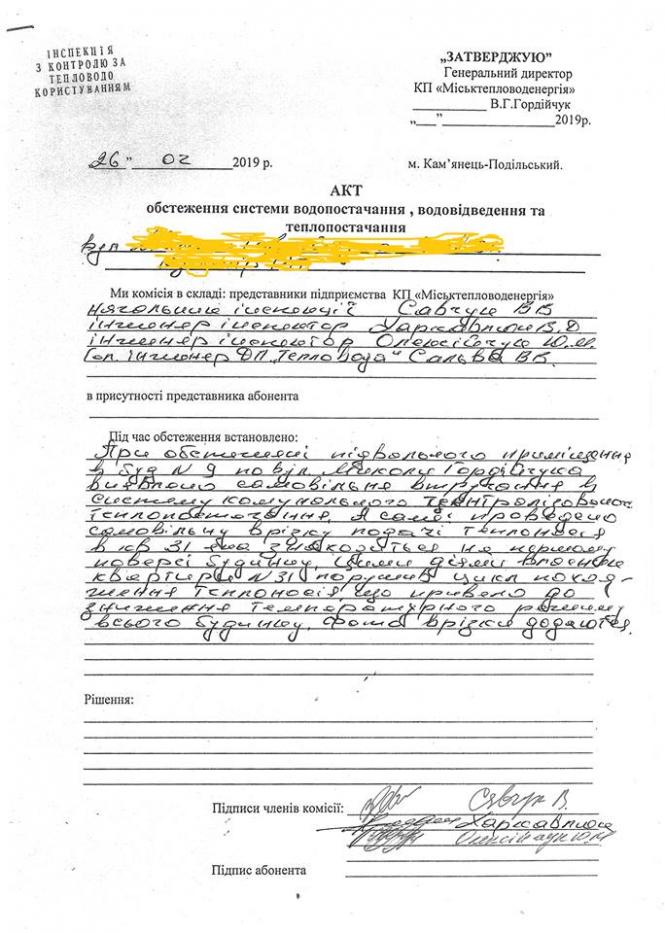 ІНСПЕКЦІЯ
З КОНТРОЛЮ ЗА
ТЕПЛОВОДО
КОРИСТУВАННЯМ
„ЗАТВЕРДЖУЮ”
Генеральний директор
КП «Міськтепловоденергія»
В.Г.Гордійчук
„___”____________2019р.
26 " 02 2019 р.
м. Кам’янець-Подільський.
АКТ
обстеження системи водопостачання , водовідведення та
теплопостачання
вул
Ми комісія в складі: представники підприємства КП «Міськтепловоденергія»
начальник інспекції Савчук В В
інженер інспектор Харкавлюк В. Д
інженер інспектор Олексійчук Ю. М.
Гол. інженер ДП „Тепловода" Сальва В.В.
в присутності представника абонента
Під час обстеження встановлено:
При обстеженні підвального приміщення
в буд N 9 по вул. Миколи Гордійчука
виявлено самовільне втручання в
систему комунального централізованого
теплопостачання. А саме проведено
самовільну врізку подачі теплоносія
в кв 31 яка знаходиться на першому
поверсі будинку. Цими діями власник
квартири N 31 порушив цикл
теплоносія що привело до
зниження температурного режиму
всього будинку. Фото врізки додаються.
Рішення:
Підписи членів комісії:
Савчук В.
Харкавлюк
Олексійчук Ю.М
Підпис абонента